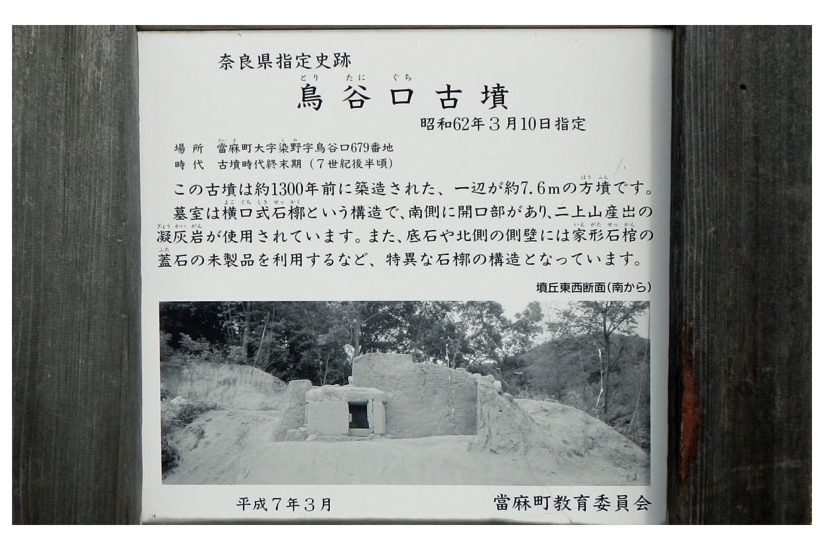 奈良県指定史跡
とり たに ぐち
鳥谷口古墳
昭和62年3月10日指定
たい ま しの
場所 當麻町大字染野字鳥谷口679番地
時代 古墳時代終末期(7世紀後半頃)
ほう ふん
この古墳は約1300年前に築造された、一辺が約7.6mの方墳です。
よこ ぐち しき せっ かく
墓室は横口式石槨という構造で、南側に開口部があり、二上山産出の
ぎょう かい がん いえ がた せっ かん
凝灰岩が使用されています。また、底石や北側の側壁には家形石棺の
ふた
蓋石の未製品を利用するなど、特異な石槨の構造となっています。
墳丘東西断面(南から)
平成7年3月
當麻町教育委員会